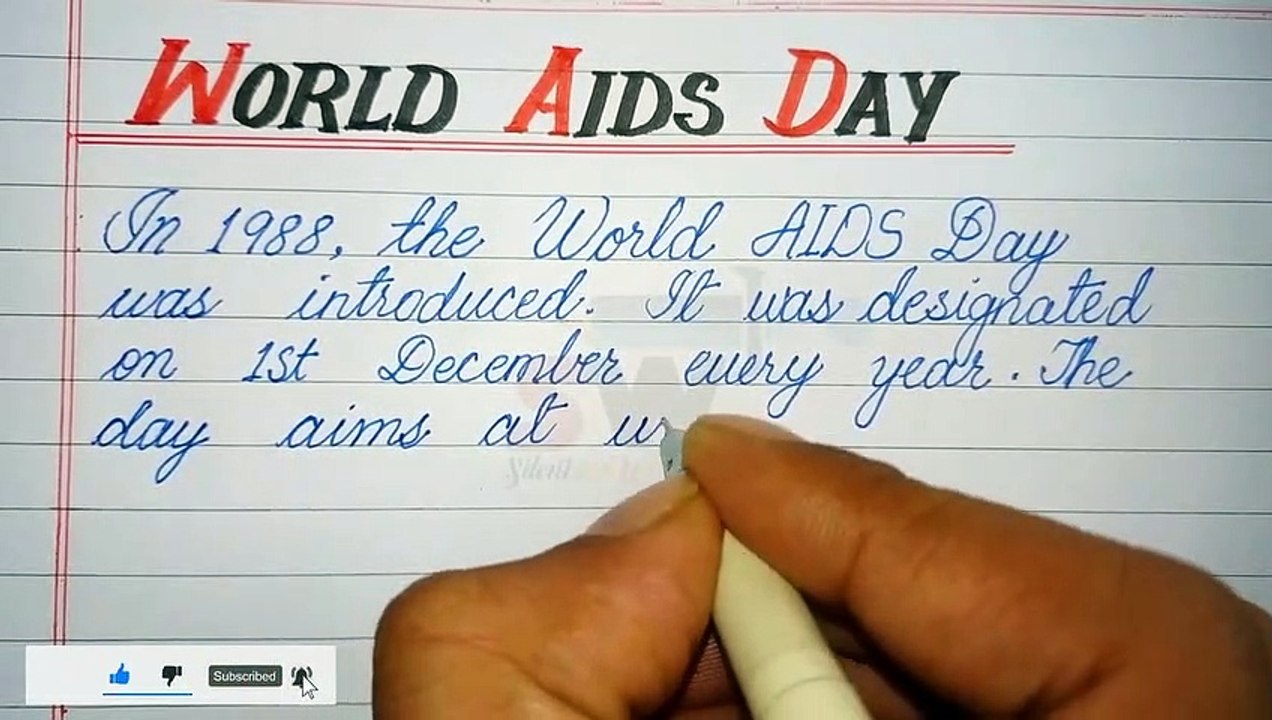 WORLD AIDS DAY
In 1988, the World AIDS Day
was introduced. It was designated
on 1st December every year. The
day aims at
Silent
Subscribed